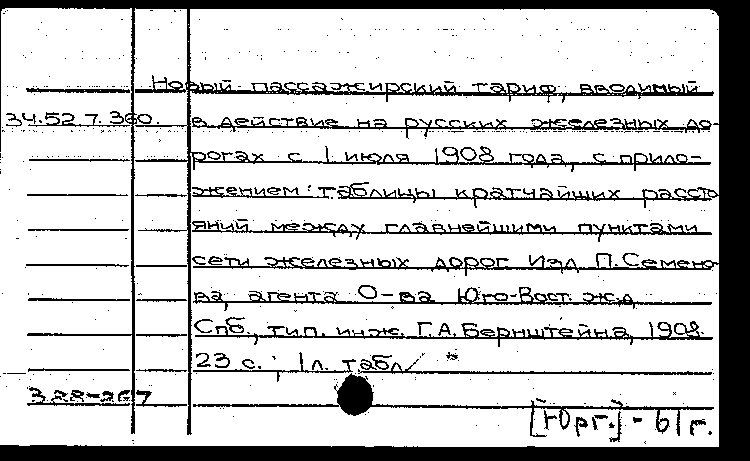 Новый пассажирский тариф, вводимый
34.52.7.360. в действие на русских железных до-
рогах с 1 июля 1908 года, с прило-
жением: таблицы кратчайших рассто
яний между главнейшими пунктами
сети железных дорог. Изд. П. Семено-
ва, агента О-ва Юго-Вост. ж.д.
Спб., тип. инж. Г.А. Бернштейна, 1908.
23 с.; 1 л. табл.
328-267
[Юрг.] - 61 г.